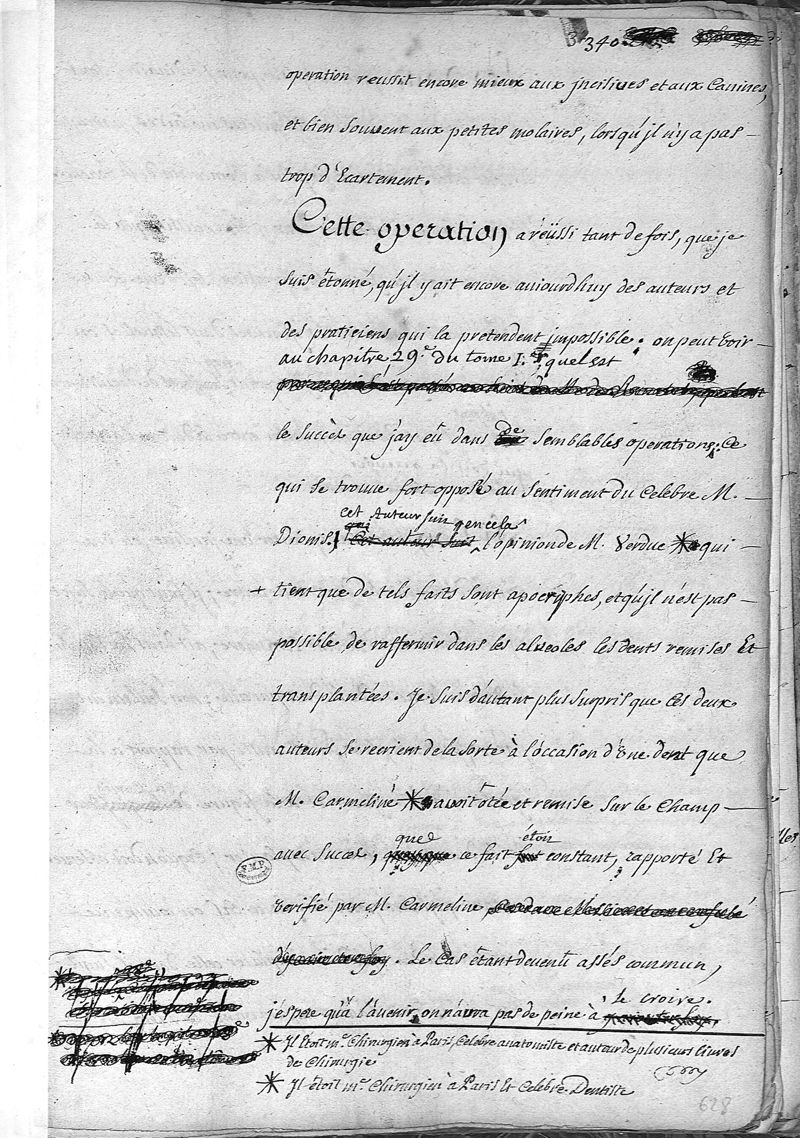 340
operation reussit encore mieux aux jncisives et aux Canines,
et bien souvent aux petites molaires, lorsqu'jl n'y a pas
trop d'Ecartement.
Cette operation a réüssi tant de fois, que je
suis étonné, qu'jl y ait encore aujourdhuy des auteurs et
des praticiens qui la pretendent jmpossible. on peut voir
au chapitre 29e. du tome I.er, quel est
le succès que jay eû dans de semblables operations, Ce
qui se trouve fort opposé au sentiment du Celebre M.
cet Auteur suit en cela
Dionis. l'opinion de M. Verduc * qui
+ tient que de tels faits sont apocriphes, et qu'jl n'est pas
possible de raffermir dans les alveoles les dents remises Et
transplantées. Je suis d'autant plus surpris que ces deux
auteurs se recrient de la sorte à l'occasion d'Une dent que
M. Carmeline * avoit ôtée et remise sur le Champ
que étoit
avec Succès, ce fait constant, rapporté Et
verifié par M. Carmeline
. Le Cas étant devenû assés commun,
le croire.
j'espere qu'à l'avenir on n'aura pas de peine à
* Jl étoit me. Chirurgien à Paris, Celebre anatomiste et auteur de plusieurs livres
de Chirurgie
* Jl étoit me. Chirurgien à Paris Et Celebre Dentiste
628